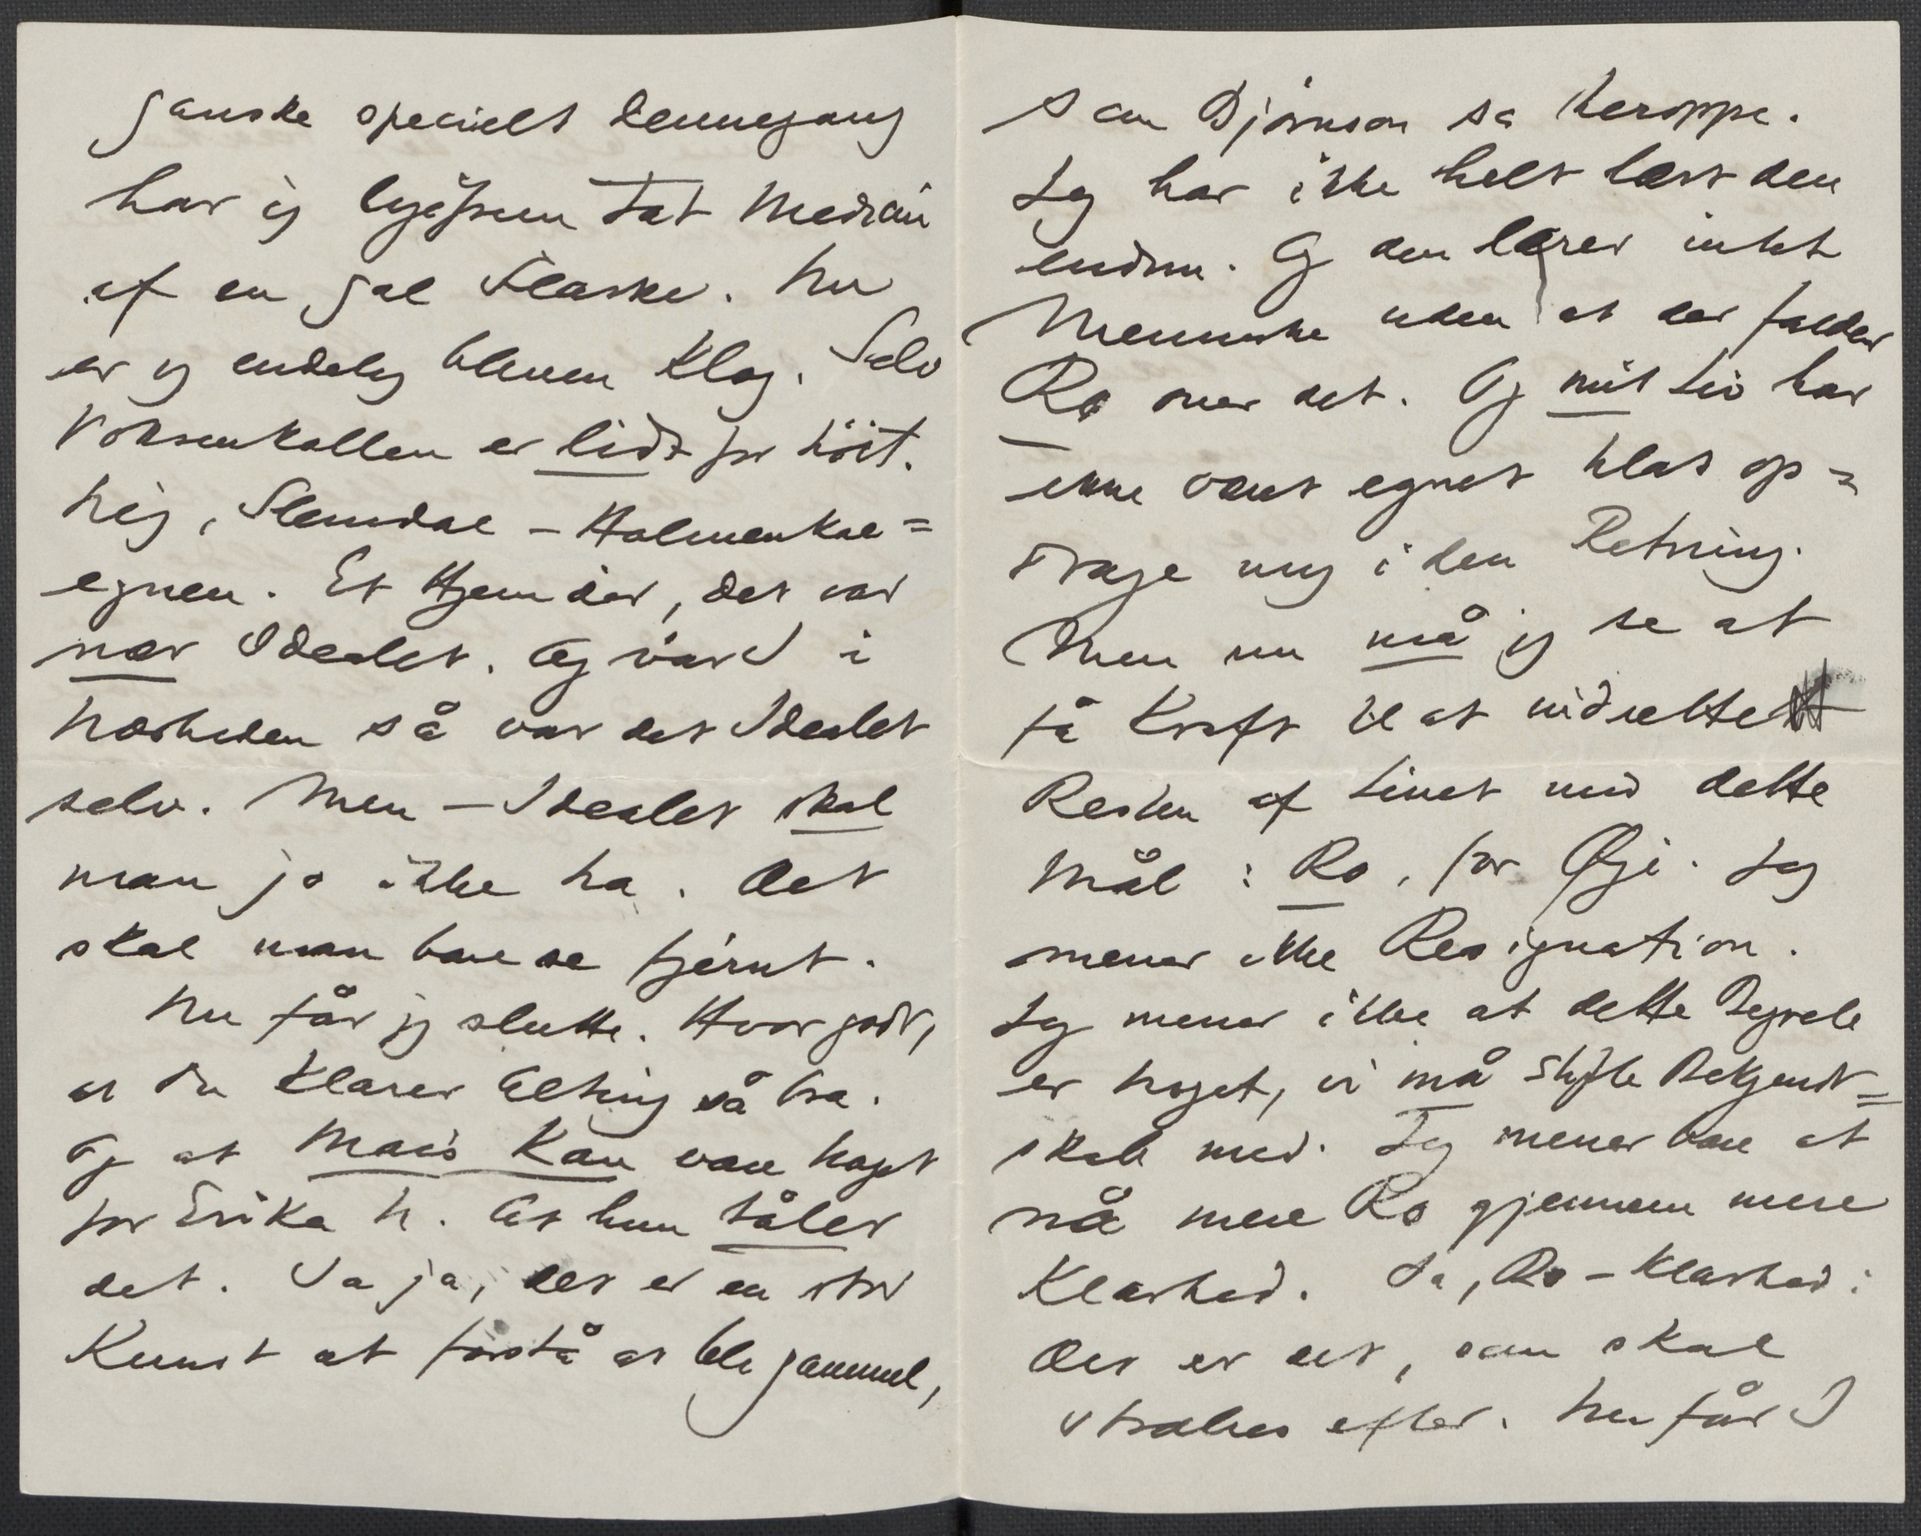 ganske specielt dennegang
har jeg ligesom tat Medicin
af en gal Flaske. Nu
er jeg endelig bleven klog. Selv
Voksenkollen er lidt for höit.
Nej, Slemdal – Holmenkol=
egnen. Et Hjem der, det var
nær Idealet. Og var I i
Nærheden så var det Idealet
selv. Men – Idealet skal
man jo ikke ha. Det
skal man bare se fjernt.
Nu får jeg slutte. Hvor godt,
at Du klarer Alting så bra.
Og at Mais kan være noget
for Erika N. At hun tåler
det. Ja ja, det er en stor
Kunst at forstå at bli gammel,
som Björnson sa heroppe.
Jeg har ikke helt lært den
endnu. Og den lærer intet
Menneske uden at der falder
Ro over det. Og mit Liv har
ikke været egnet blot op=
drage mig i den Retning.
Men nu må jeg se at
få Kraft til at indrette
Resten af Livet med dette
Mål: Ro, for Öje. Jeg
mener ikke Resignation.
Jeg mener ikke at dette
er noget, vi må stifte Bekjendt=
skab med. Jeg mener bare at
nå mere Ro gjennem mere
Klarhed. Ja, Ro – Klarhed:
Det er det, som skal
stræbes efter. Nu får I